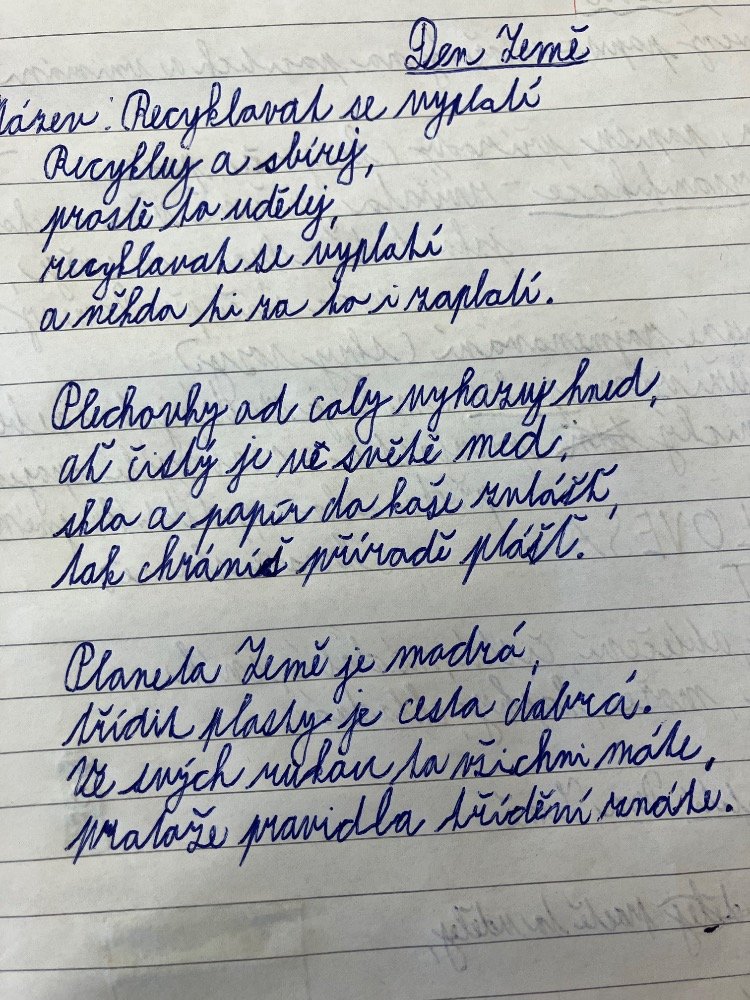 Den Země
Název: Recyklovat se vyplatí
Recykluj a sbírej,
prostě to udělej,
recyklovat se vyplatí
a někdo ti za to i zaplatí.
Plechovky od coly vyhazuj hned,
ať čistý je ve světě med;
skla a papír do koše zvlášť,
tak chrániš přírodě plášť.
Planeta Země je modrá,
třídit plasty je cesta dobrá.
Ve svých rukou to všichni máte,
protože pravidla třídění znáte.